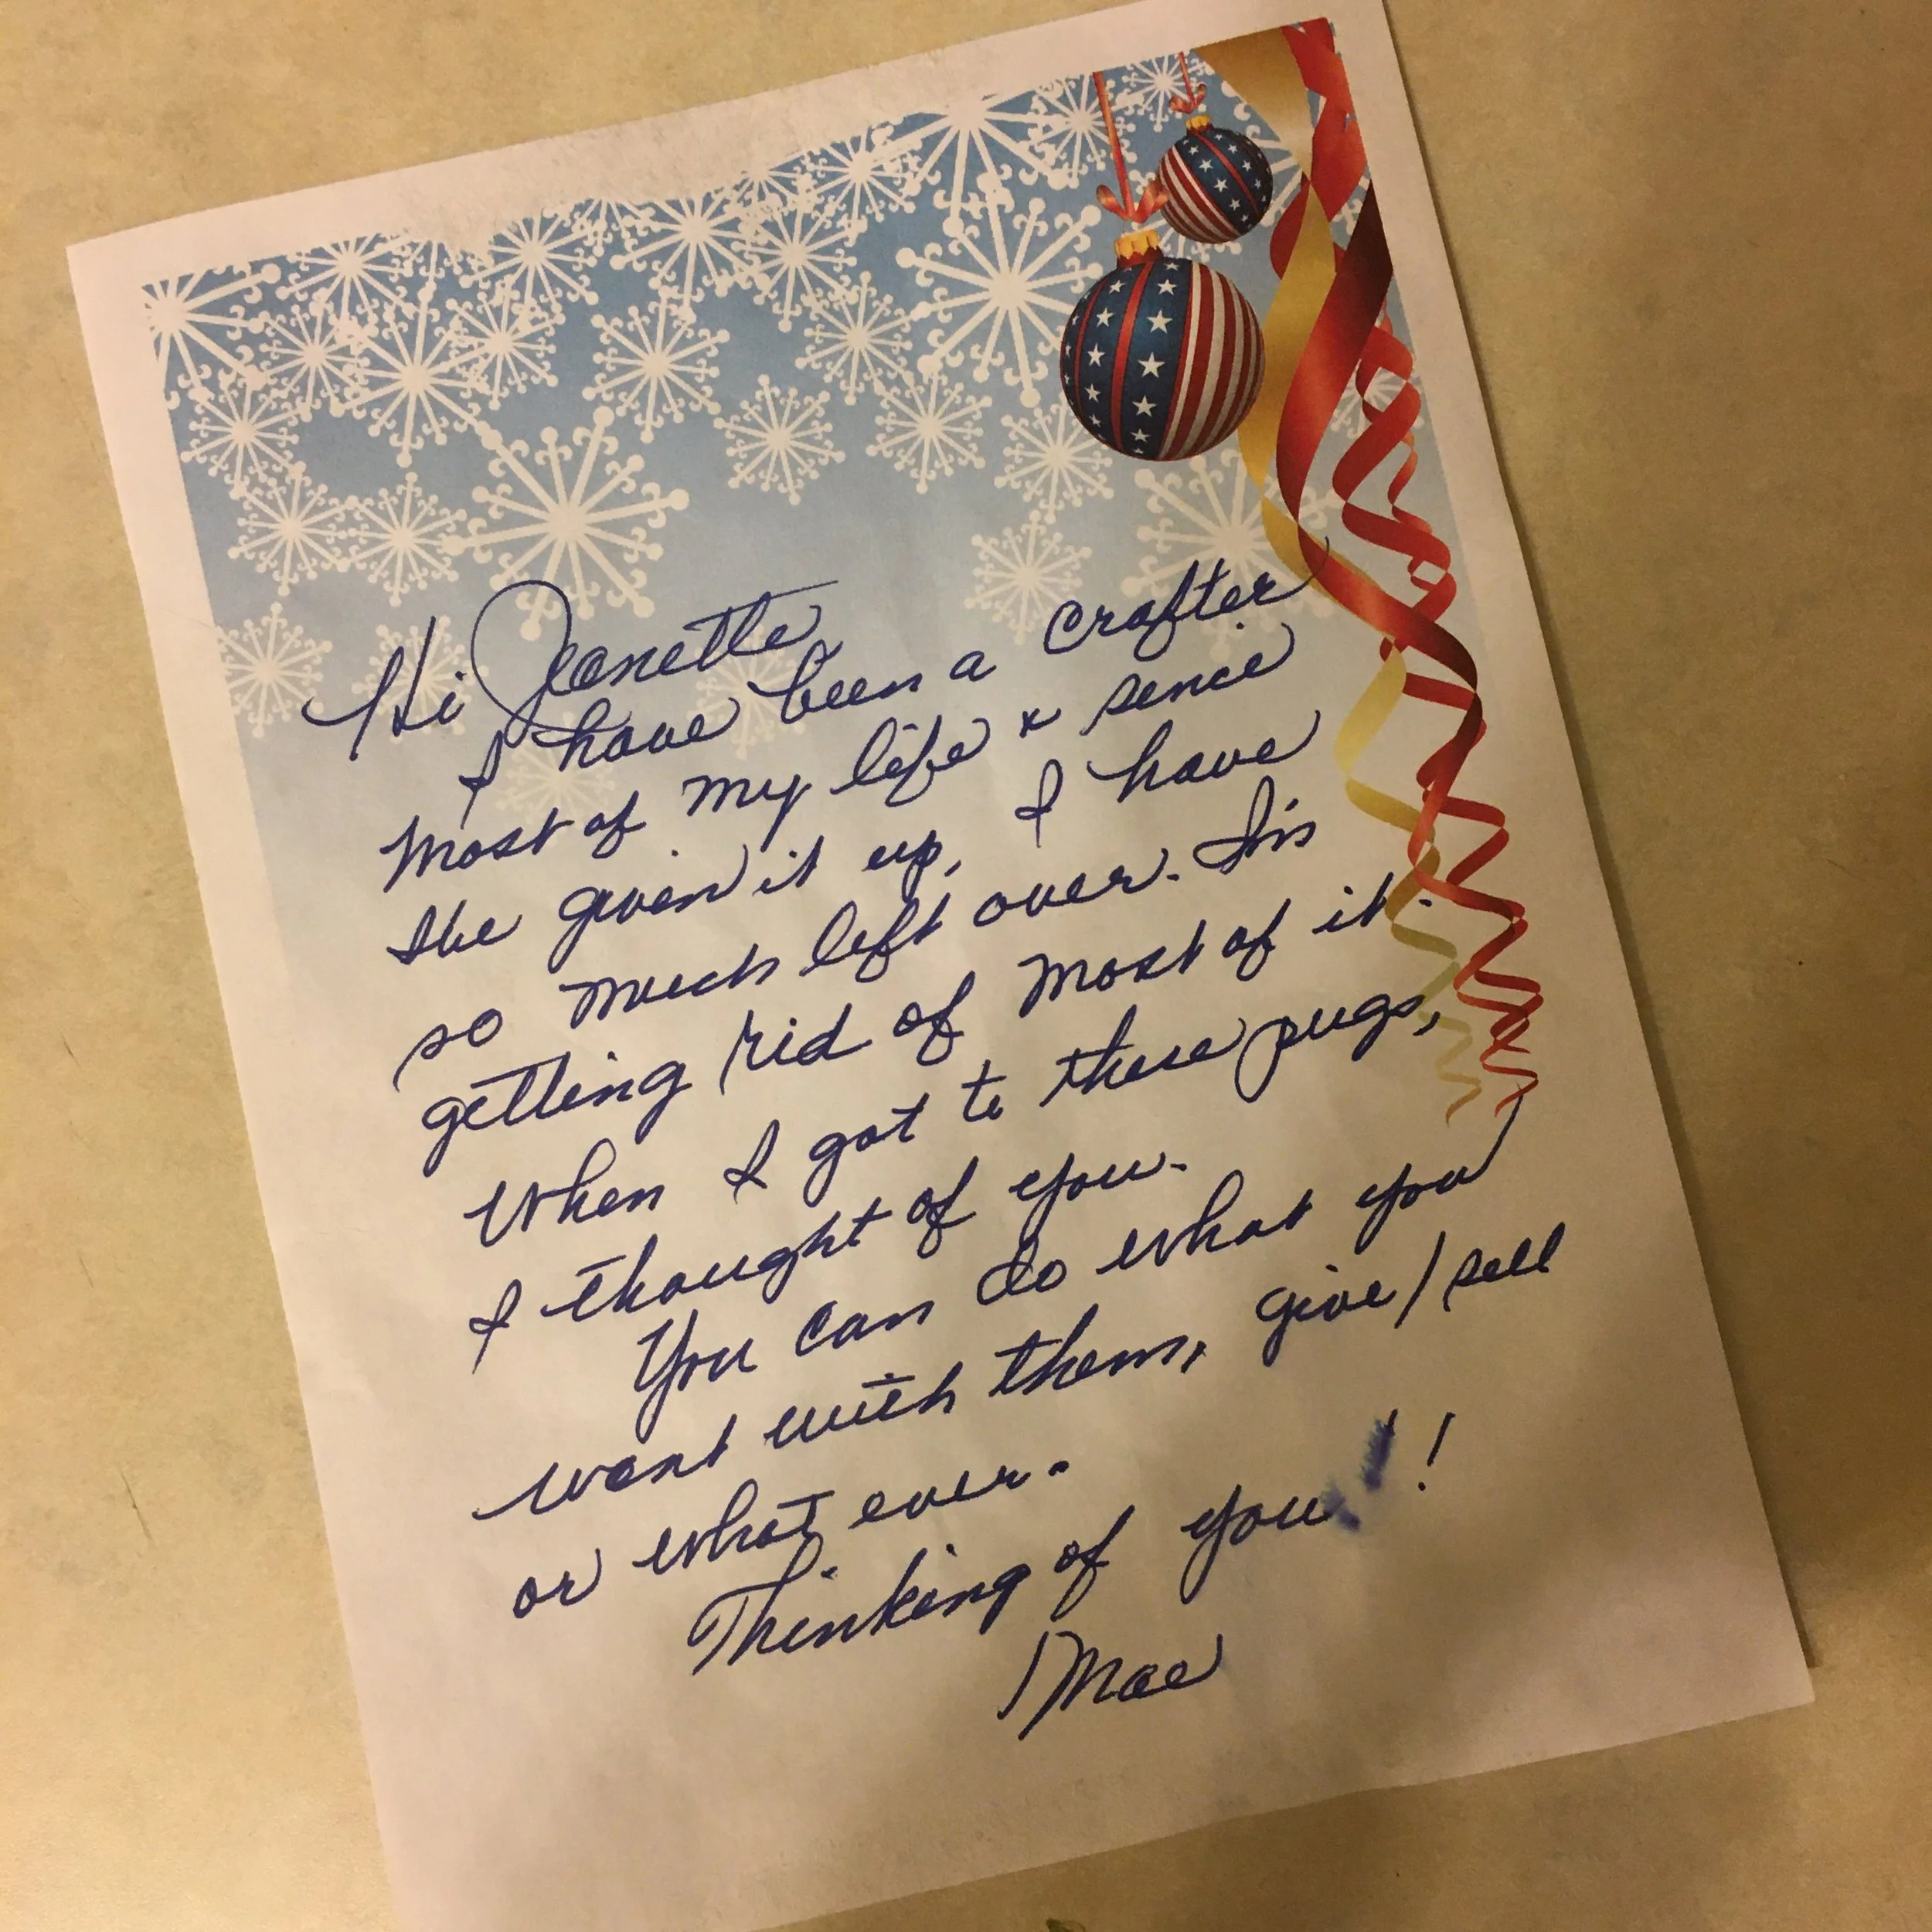 Hi Jeanette
I have been a crafter
most of my life & sence
I've given it up, I have
so much left over. I'm
getting rid of most of it.
When I got to these pugs,
I thought of you.
You can do what you
want with them, give/sell
or what ever.
Thinking of you!
Mae